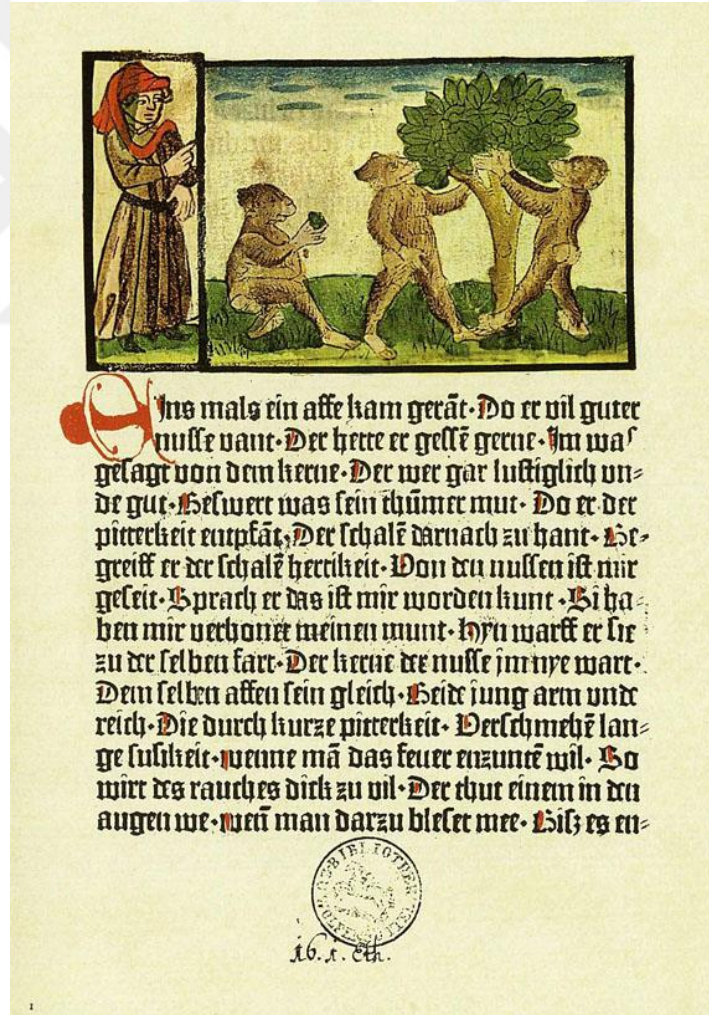 Ins mals ein affe kam gerāt· Do er vil guter
nusse vant· Der hette er gessē gerne· Im waſ
gesagt von dem kerne· Der wer gar lustiglich vn⸗
de gut· Beswert was sein thūmer mut· Do er der
pitterkeit entpfāt· Der schalē darnach zu hant· Be⸗
greiff er der schalē herrikeit· Von den nussen ist mir
geseit· Sprach er das ist mir worden kunt· Si ha⸗
ben mir verhonet meinen munt· hyn warff er sie
zu der selben fart· Der kerne der nusse im nye wart·
Dem selben affen sein gleich· Beide iung arm vnde
reich· Die durch kurze pitterkeit· Verschmehē lan⸗
ge susikeit· wenne mā das feuer enzuntē wil· So
wirt des rauches dick zu vil· Der thut einem in den
augen we· wen̄ man darzu bleset mee· Bisz es en⸗
BIBLIOTHEK
16. 1. Eth.
1